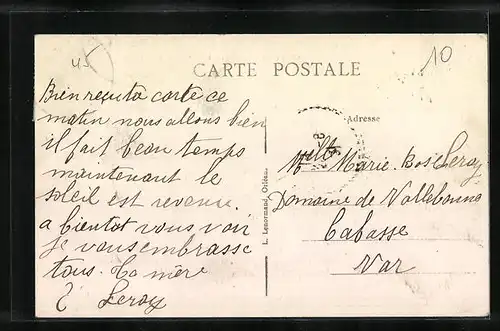 45
10
CARTE POSTALE
Adresse
Bien reçu ta carte ce
matin nous allons bien
il fait beau temps
maintenant le
soleil est revenu
a bientot vous voir
je vous embrasse
tous. Ta mère
Leroy
L. Lenormand, Orléans
Melle Marie
Domaine de Vallebonne
Cabasse
Var